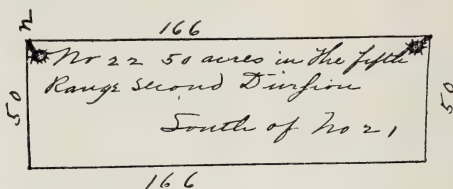 n
166
No 22 50 acres in the fifth
50
Range Second Divsion
50
South of No 21
166